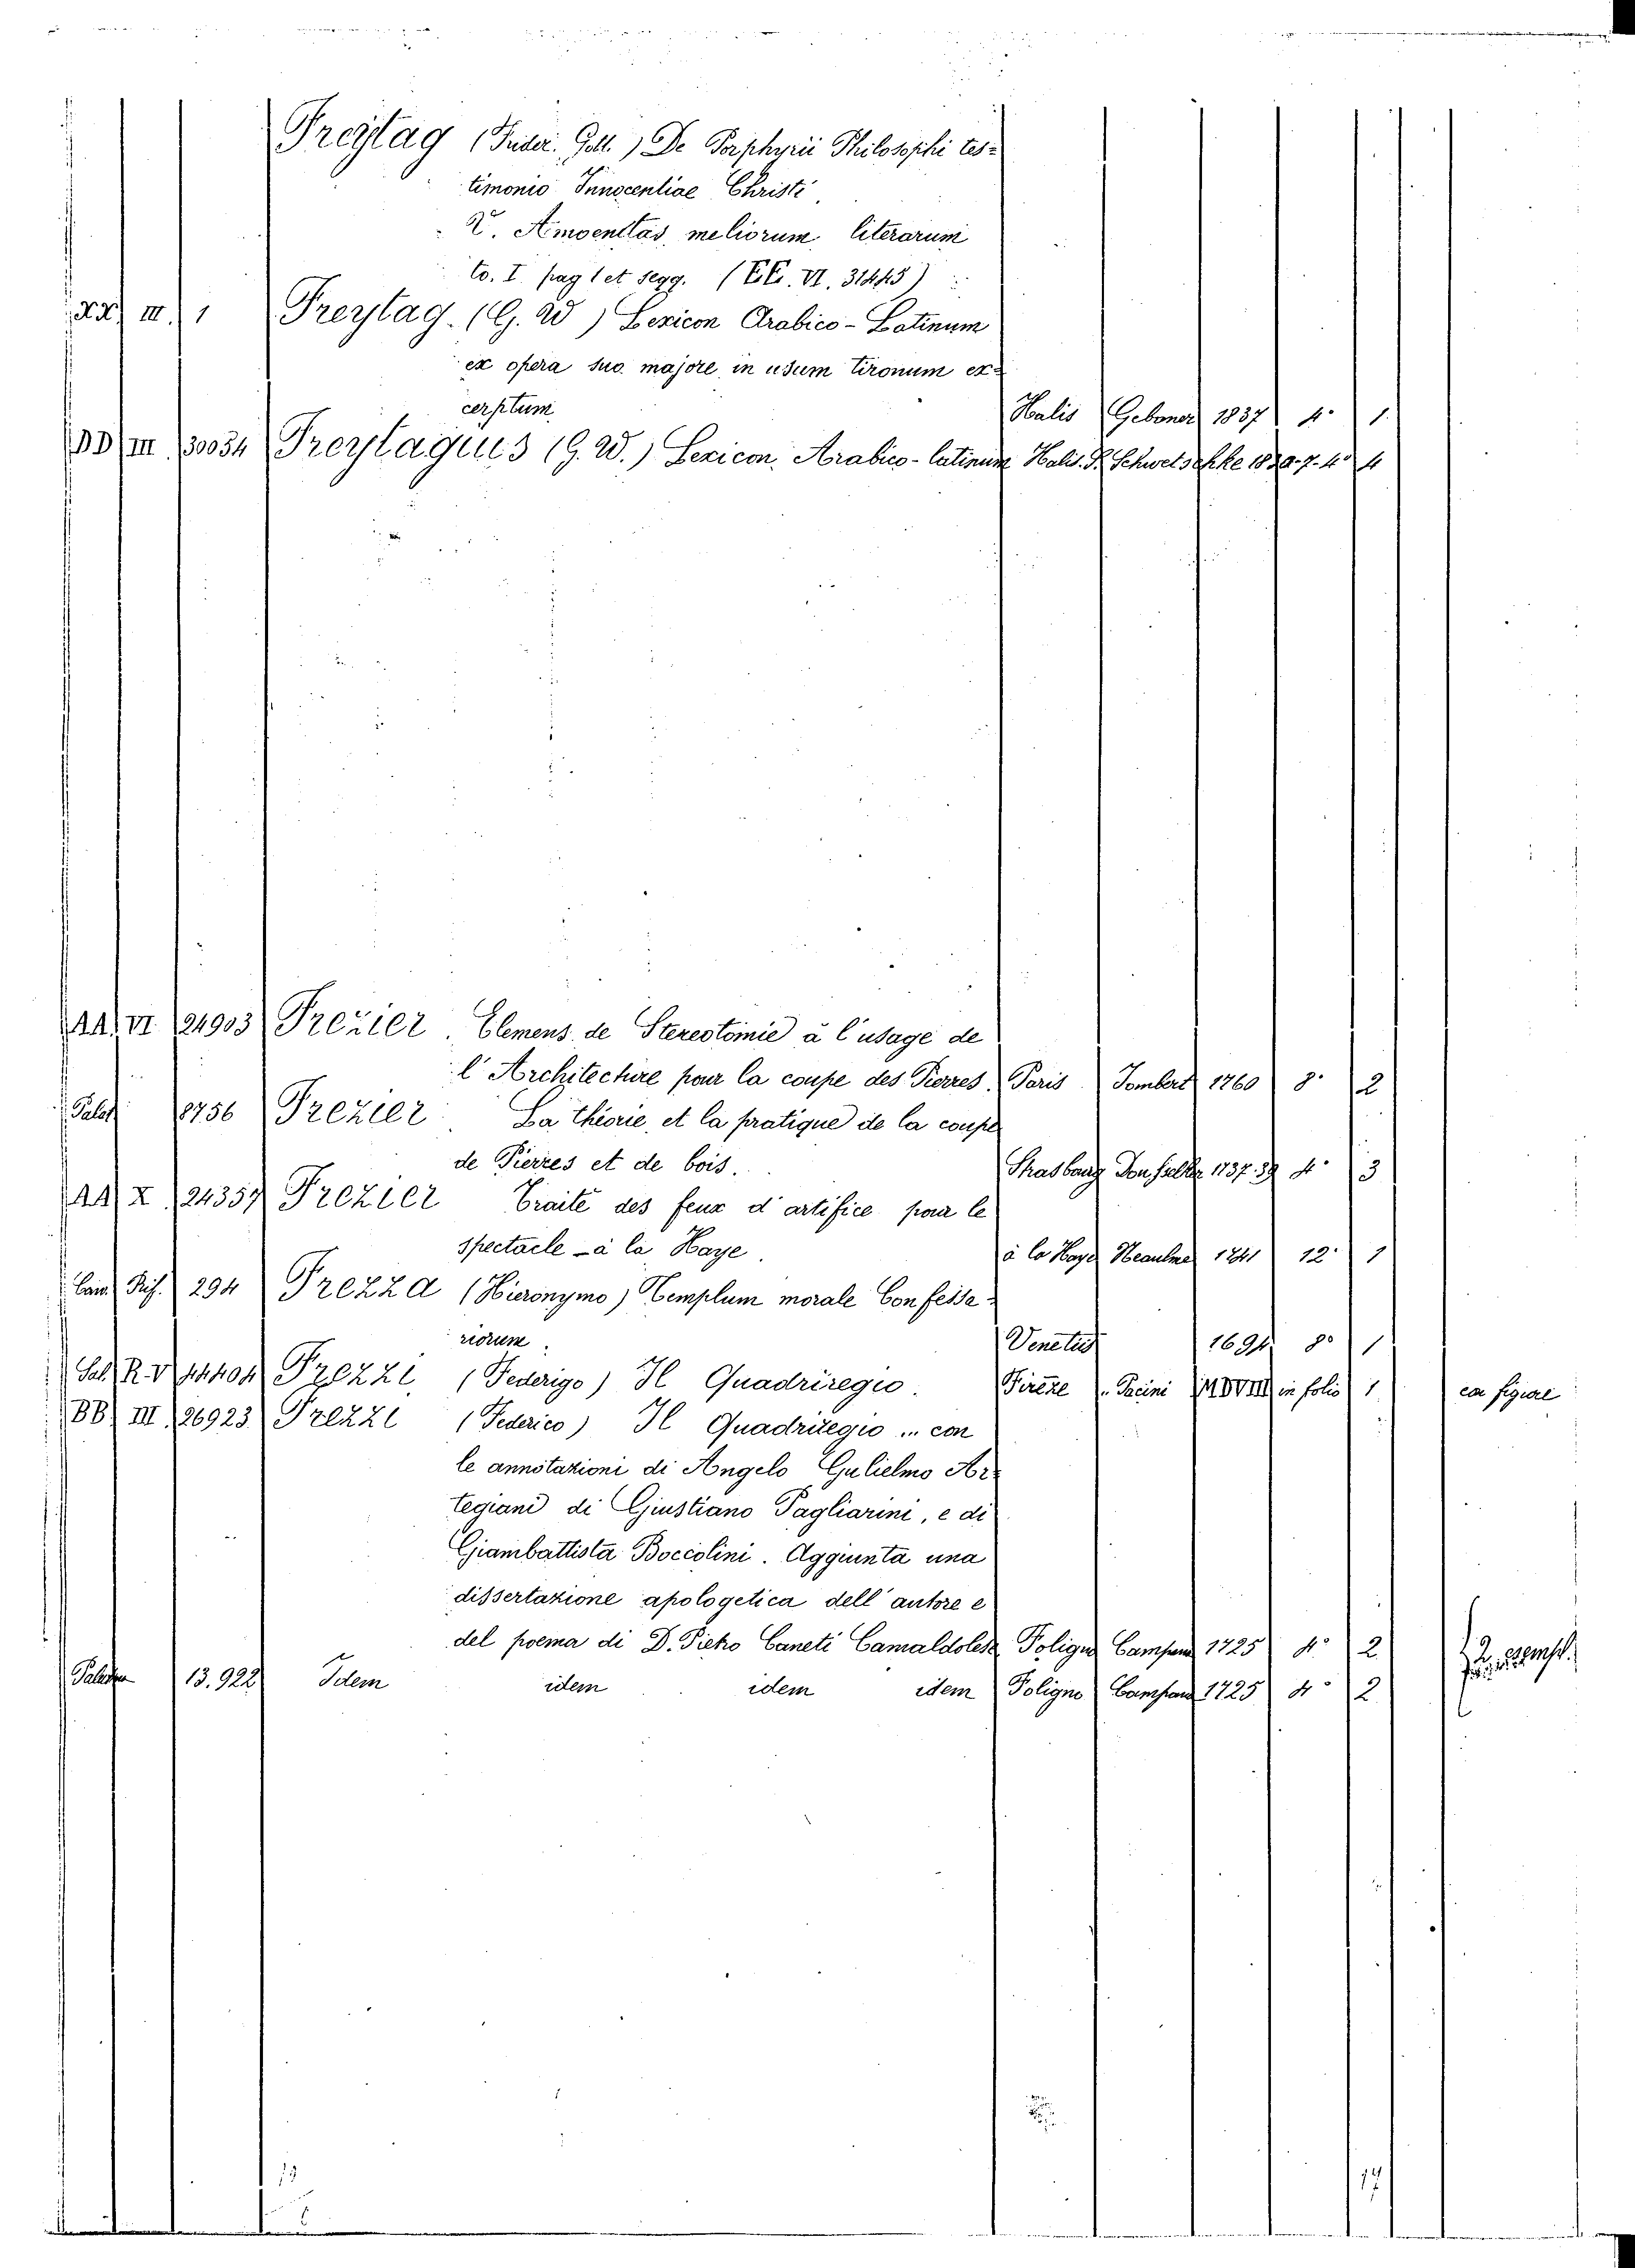 Freytag (Frider. Gott.) De Porphyrii Philosophi tes=
timonio Innocentiae Christi
V. Amoenitas meliorum literarum
to. I pag 1 et segg. (EE. VI. 31445)
XX III. 1 Freytag. (G. W) Lexicon Arabico-Latinum
ex opera suo majore in usum tironum ex=
cerptum Halis Gebaner 1837 4° 1.
DD III 30034 Freytagius (G. W.) Lexicon Arabico-latinum Halis. Schwetschke 1830-7. 4° 4
AA VI 24903 Frezier. Elemens de Stereotomie à l'usage de
l'Architecture pour la coupe des Pierres. Paris Jombert 1760 8° 2
Palat 8756 Frezier La théorie et la pratique de la coupe
de Pierres et de bois. Strasbourg Doulseker 1737.39 4° 3
AA X 24357 Frezier Traité des feux d'artifice pour le
spectacle - à la Haye. à la Haye Neaulme 1741 12° 1
294 Frezza (Hieronymo) Templum morale Confessa=
riorum. Venetiis 1694 8° 1
Sal. R. V 44404 Frezzi (Federigo) Il Quadriregio. Firenze Pacini MDVIII in folio 1 con figure
BB III 26923 Frezzi (Federico) Il Quadriregio ... con
le annotazioni di Angelo Gulielmo Ar=
tegiani di Giustiano Pagliarini, e di
Giambattista Boccolini. Aggiunta una
dissertazione apologetica dell'autore e
del poema di D. Pietro Caneti Camaldolese Foligno Campana 1725 4° 2 2. esempl.
13.922 Idem idem idem idem Foligno Campana 1725 4° 2
13
17